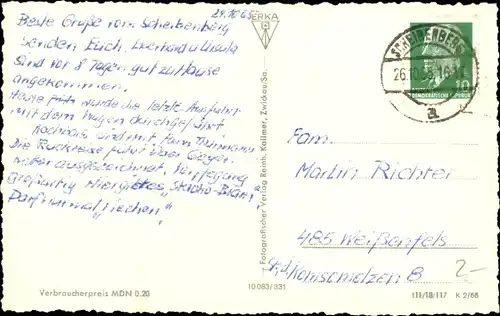 24.10.68
Beste Grüße vom Scheibenberg
senden Euch Eberhard u Ursula
Sind vor 8 Tagen gut zu Hause
angekommen.
Heute früh wurde die letzte Ausfahrt
mit dem Wagen durchgeführt
Nochmals sind mit
Die Rückreise führt über Geyer.
ausgezeichnet. Verpflegung
großartig. Hier gibt es "Studio-Bräu"
Darf nur mal riechen.
ERKA
Fotografischer Verlag Reinh. Kallmer, Zwickau/Sa.
SCHEIBENBERG
26.10.68.16-17
a
10
DEUTSCHE DEMOKRATISCHE REPUBLIK
Fam.
Martin Richter
485 Weißenfels
Str. d. Komsomolzen 8
2-
Verbraucherpreis MDN 0.20
10 063/331
111/18/117 K 2/66